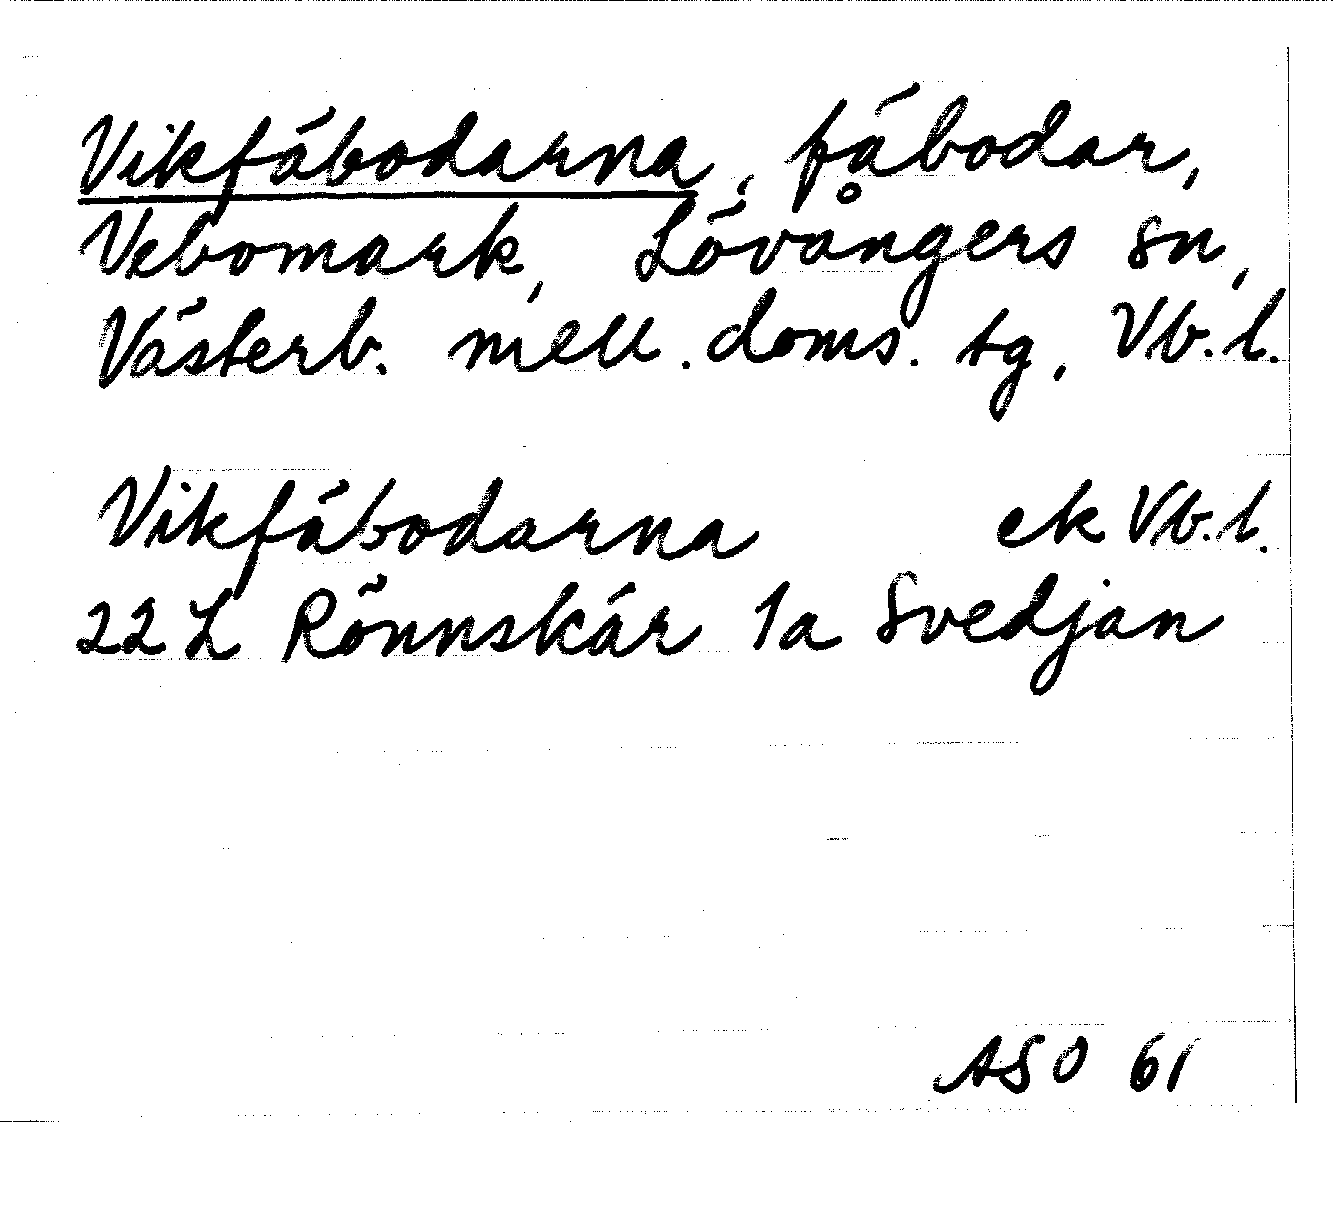 Vikfäbodarna, fäbodar,
Vebomark, Lövångers sn,
Västerb. mell. doms. tg, Vb. l.
Vikfäbodarna ek Vb. l.
22 L Rönnskär 1a Svedjan
ASO 61